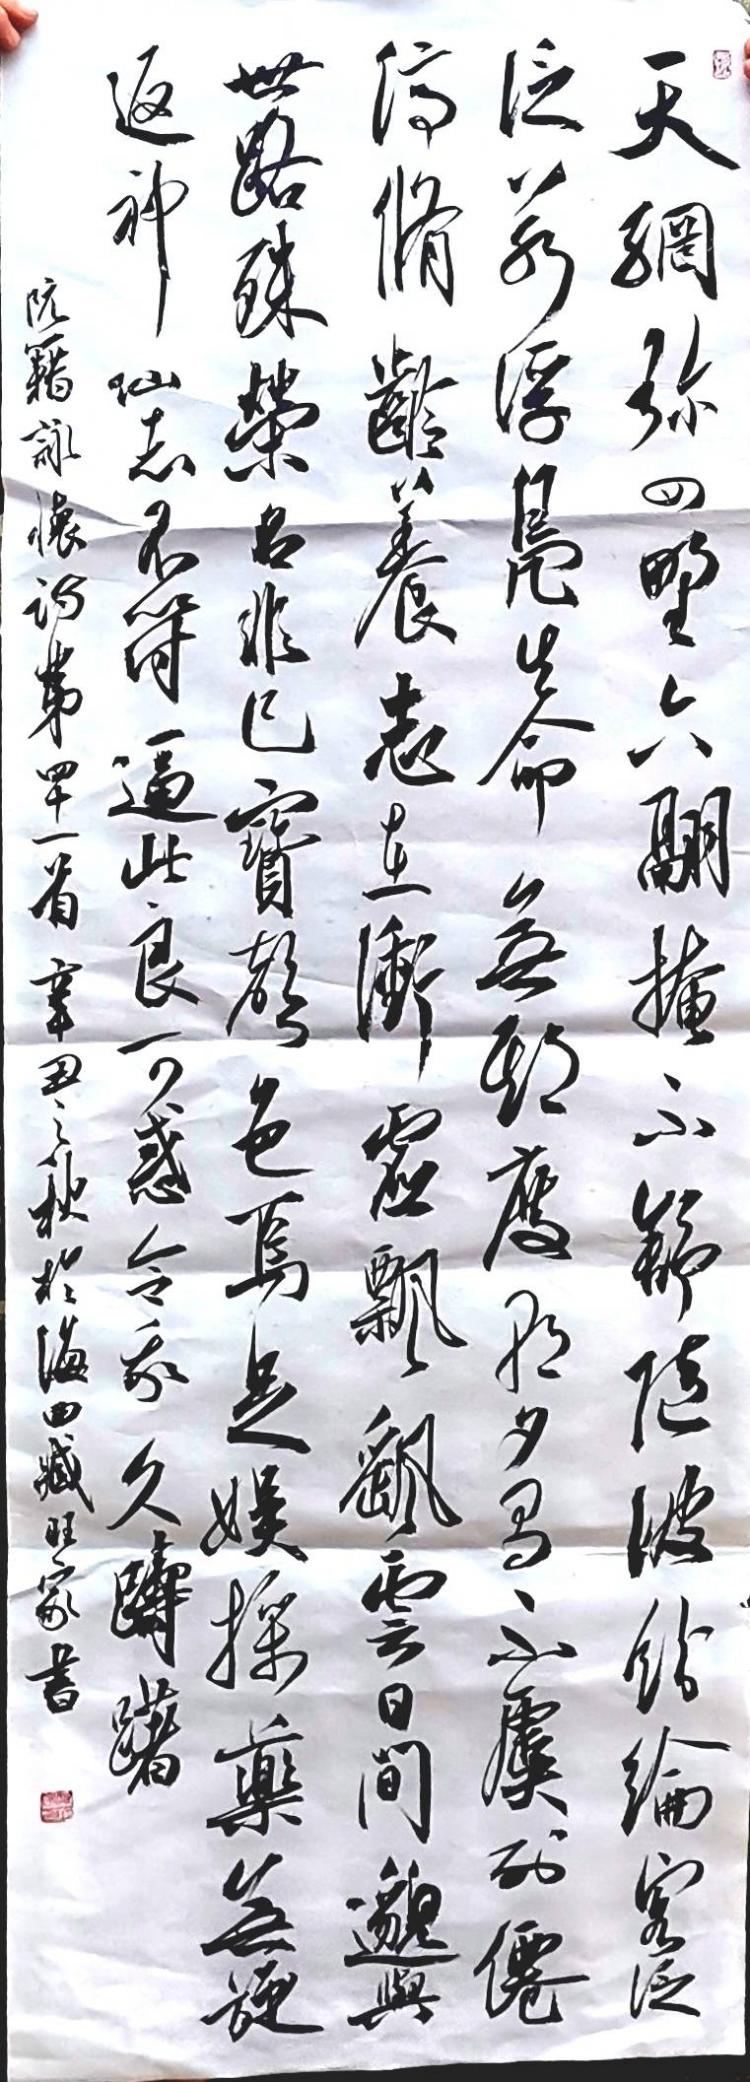 天網弥四野六翮掩不舒隨波紛綸客泛
泛若浮鳧生命無期度朝夕有不虞列僊
停脩齡養志在衝虛飄飄雲日間邈與
世路殊榮名非己寶聲色焉足娛採藥無旋
返神仙志不符逼此良可惑令我久躊躇
阮籍詠懷詩第四十一首辛丑之秋於海田臧旺家書